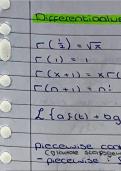 Differential
Γ(½) = √π
Γ(1) = 1
Γ(x+1) = xΓ(
Γ(n+1) = n!
ℒ{af(t) + bg
piecewise con
- piecewise :